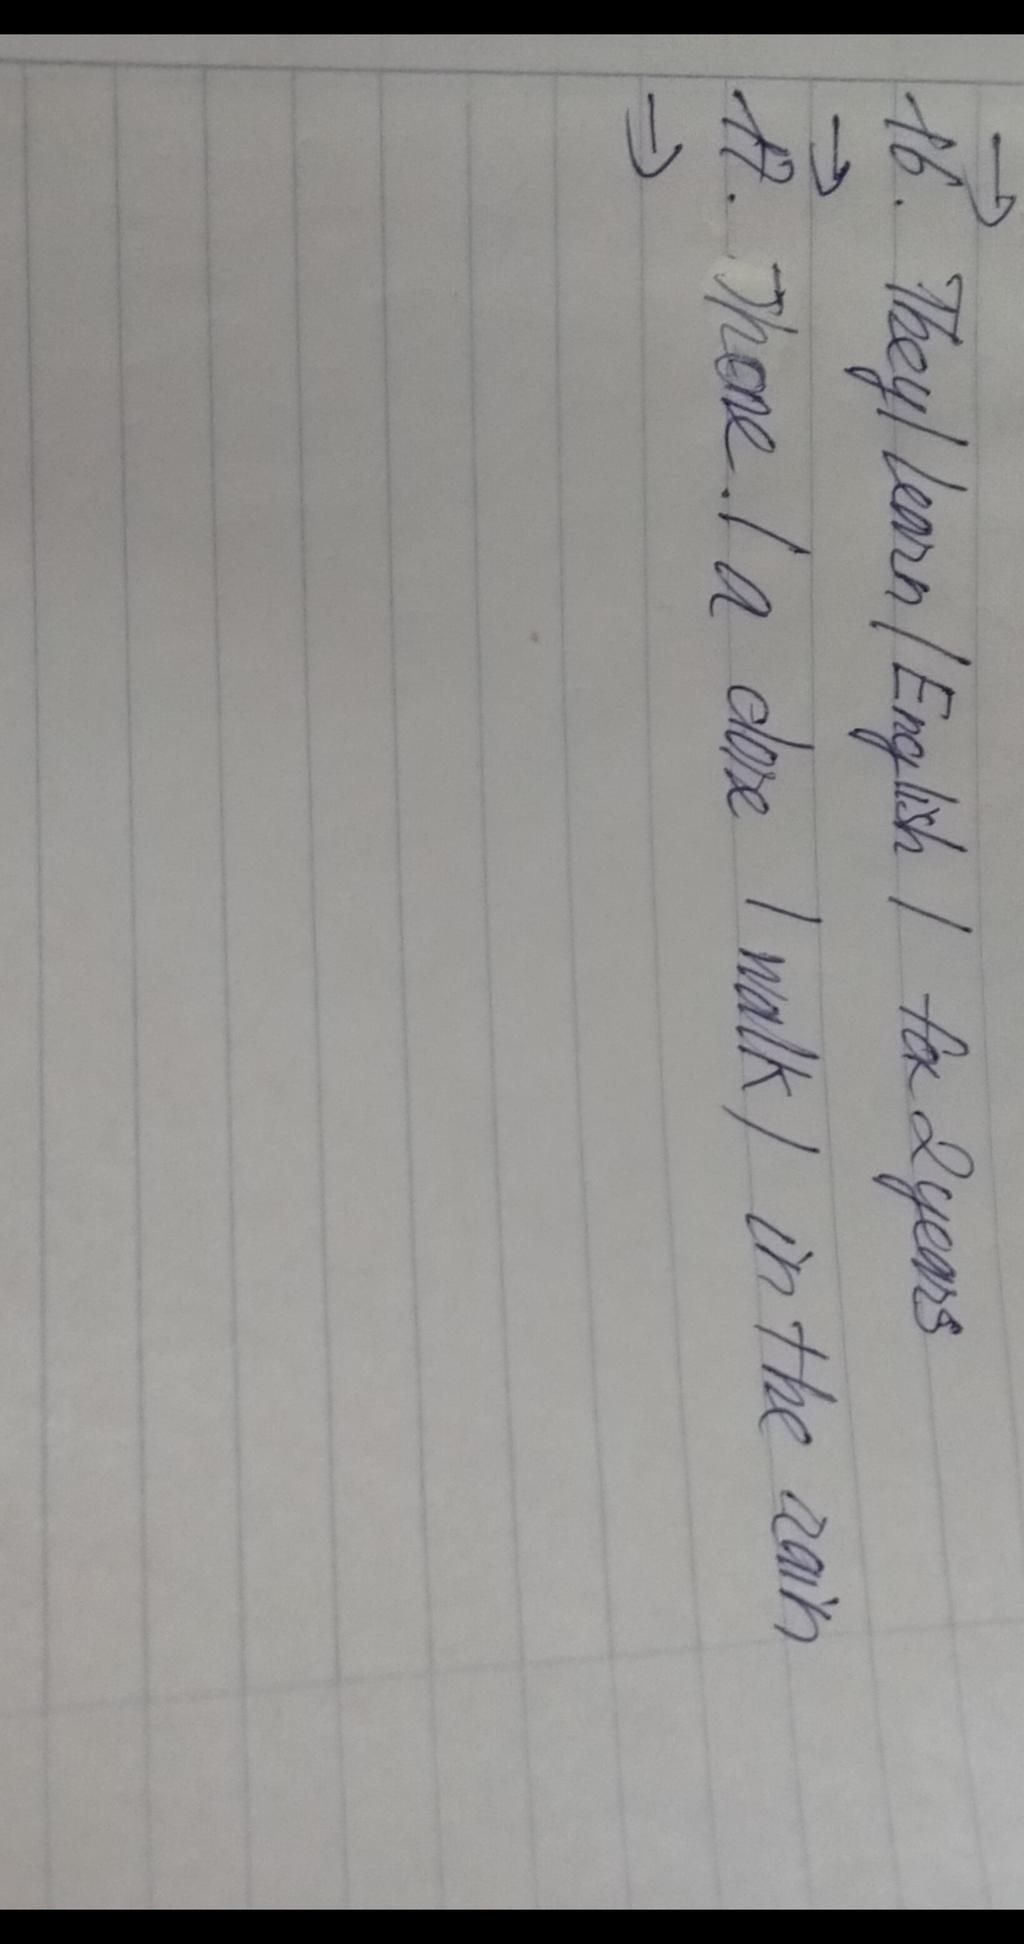 →
16. They / learn / English / for 2 years
→
17. There / a dove / walk / in the rain
⇒